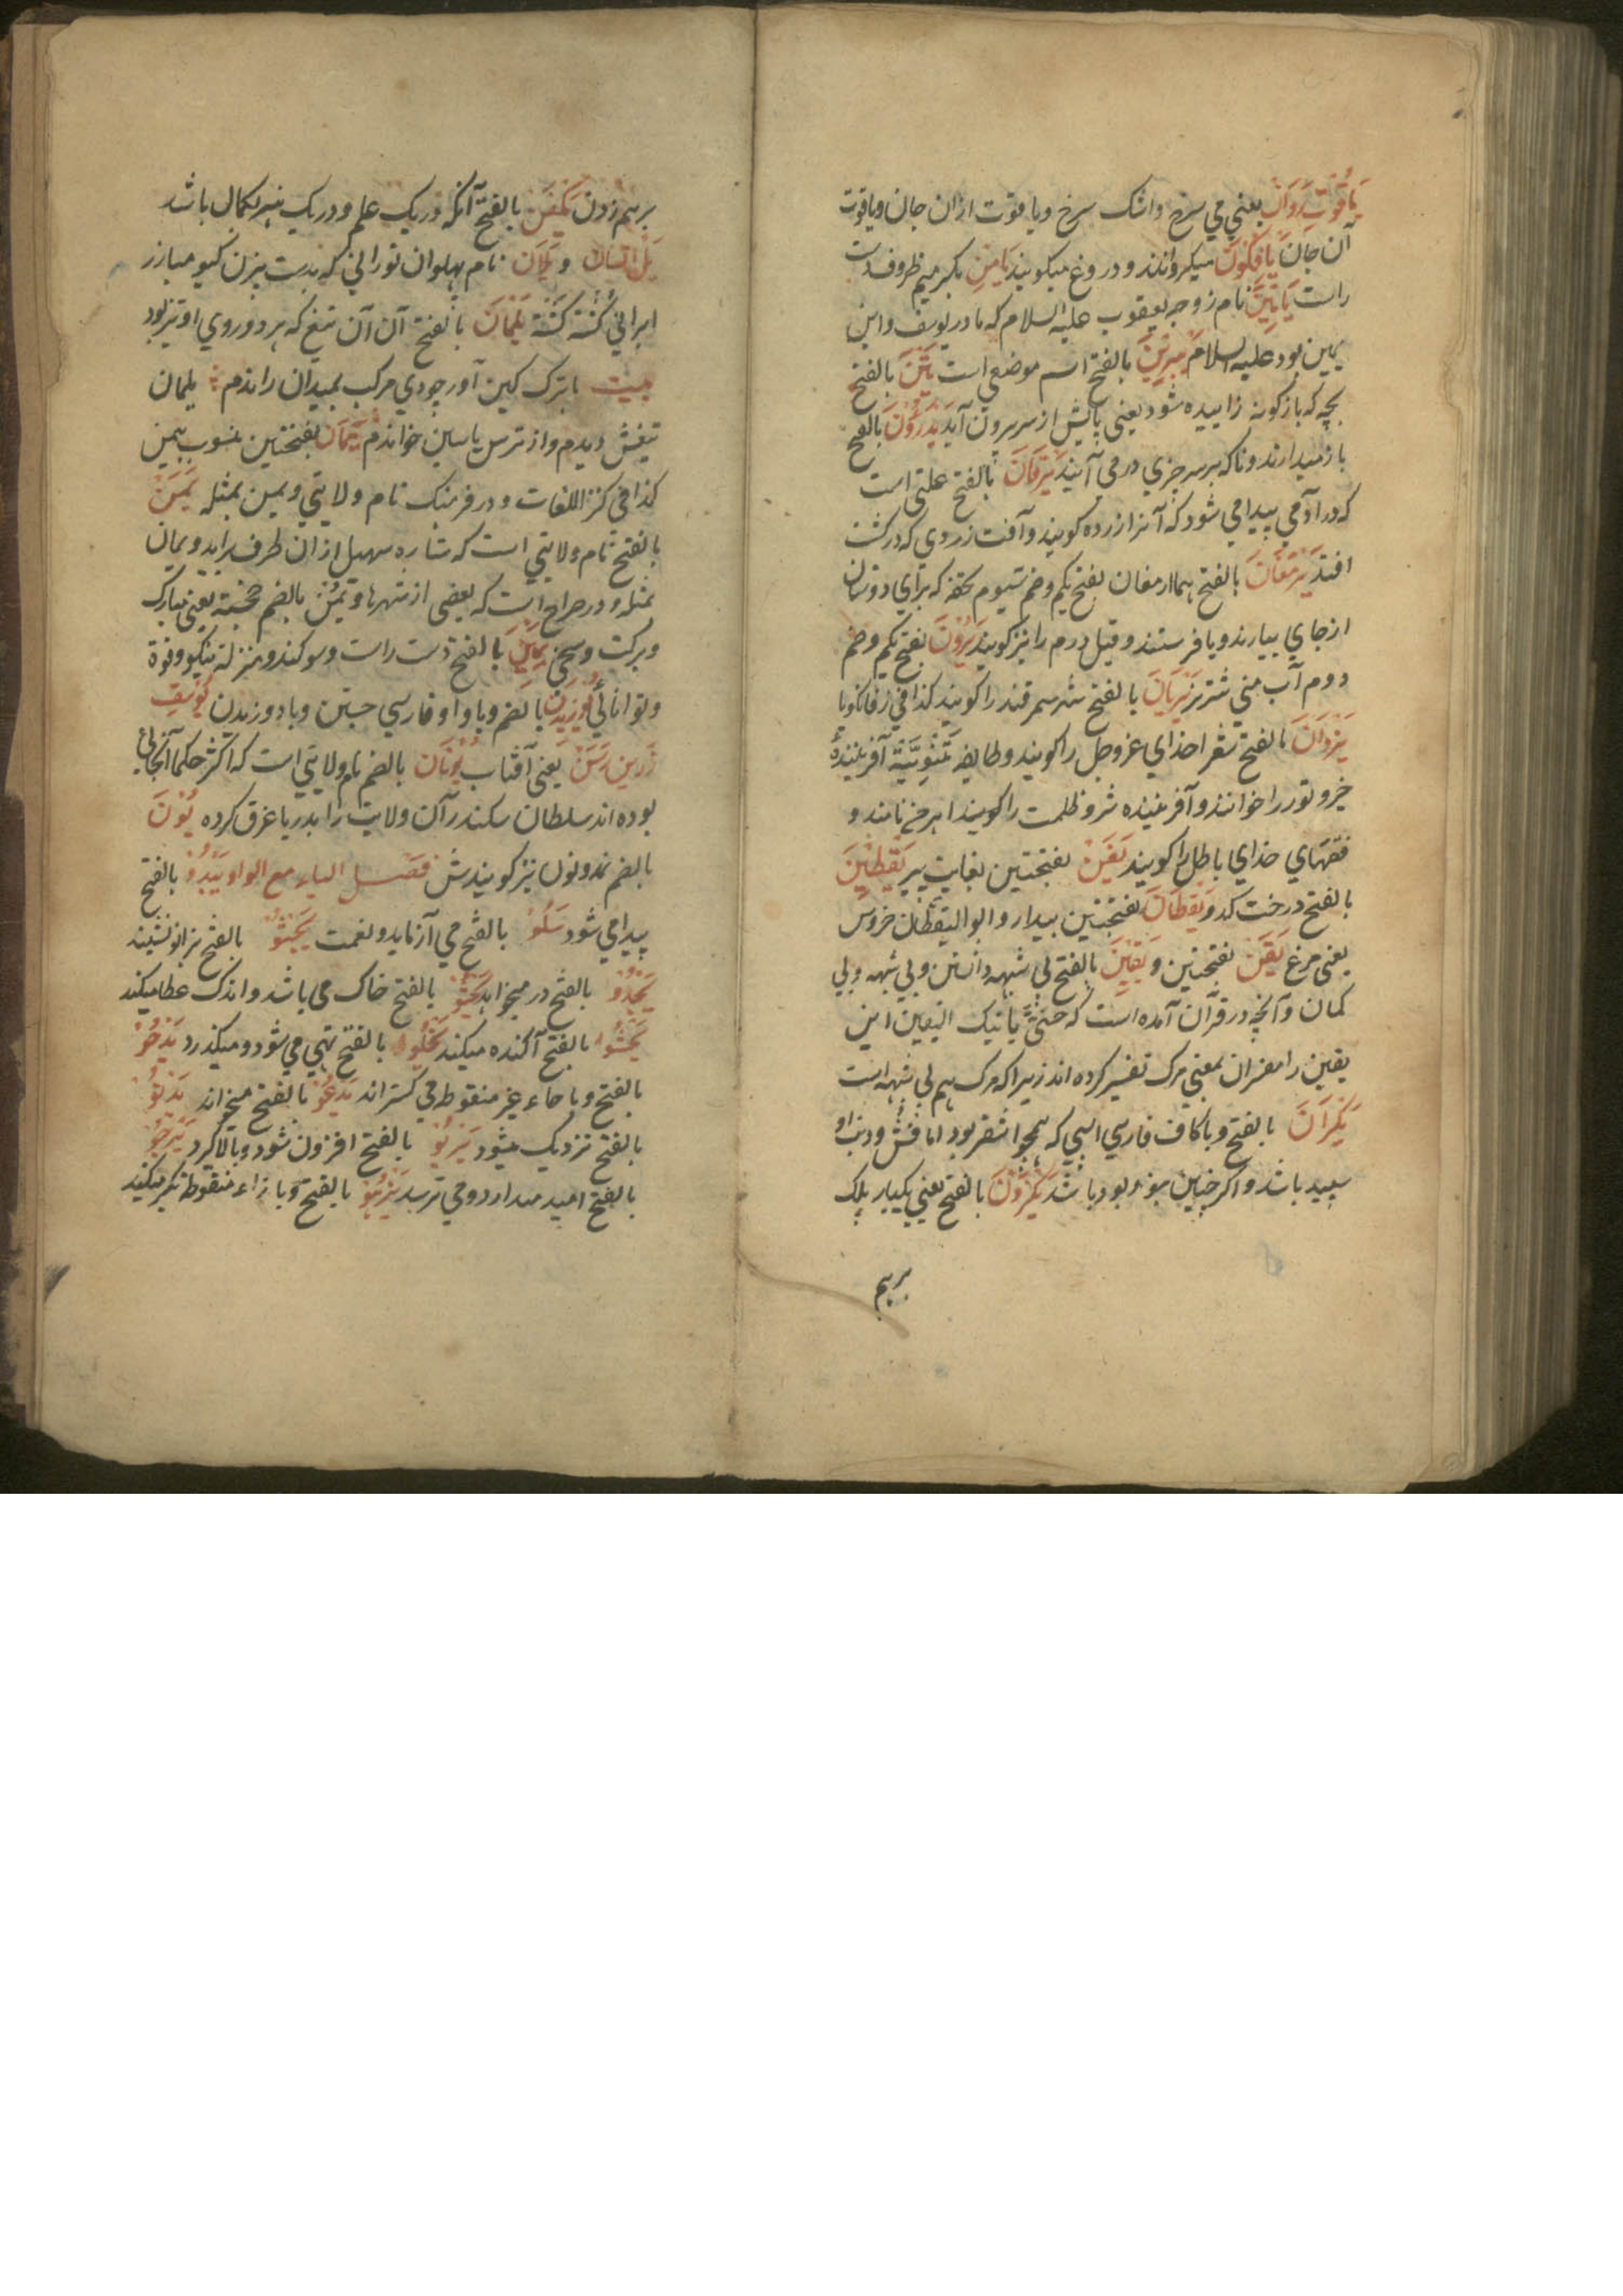 یاقوت روان یعني مي سرخ و اشک سرخ و یا قوت ازان جان و یاقوت
آن جان یافکون میکردانند و دروغ میکویند یامن بکسر میم ظروف دست
راست یاتین نام زوجه یعقوب علیه السلام که مادر یوسف و ابن
یمین بود علیه السلام یبرین بالفتح اسم موضعي است یتن بالفتح
بچه که بازکونه زاییده شود یعني پایش از سر بیرون آید یدرون بالفتح
باز میدارند و ناکه بر سر چیزي در مي آیند یرقان بالفتح علتي است
که در آدمي پیدا مي شود که آنرا زرده کویند و آفت زردي که در کشت
افتد یرمغان بالفتح همان ارمغان بفتح یکم و ضم سیوم تحفه که براي دوستان
از جاي بیارند و یا فرستند و قیل درم را نیز کویند یرون بفتح یکم و ضم
دوم آب مني شتر نر یریان بالفتح شهر سمرقند را کویند کذا في زفانکویا
یزدان بالفتح مر خداي عز و جل را کویند و طایفه ثنویّة آفریننده
خیر و نور را خوانند و آفریننده شر و ظلمت را کویند اهرمن نامند و
فقهاي خداي باطل را کویند یفن بفتحتین بغایت پیر یقطین
بالفتح درخت کدو یقظان بفتحتین بیدار و ابو الیقظان خروس
یعني مرغ یقن بفتحتین و یقین بالفتح بي شبهه دانستن و بي شبهه و بي
کمان و آنچه در قرآن آمده است که حتیّ یاتیک الیقین این
یقین را مفسران بمعني مرک تفسیر کرده اند زیرا که مرک هم بي شبهه است
یکران بالفتح و با کاف فارسي اسبي که همچو اشقر بود اما فش و دنب او
سپید باشد و اکر چنین نبود بود باشد یکزون بالفتح یعني یکبار پلک
برهم
برهم زدن یکفن بالفتح آنکه در یک علم و در یک هنر بکمال باشد
یل انسان و یلان نام پهلوان توراني که بدست بیژن کیو مبارز
ایراني کشته کشته یلمان بالفتح آن آن تیغ که هر دو روي او تیز بود
بیت با ترک کین آور چو دي مرکب بمیدان راندم یلمان
تیغش دیدم و از ترس یاسین خواندم یمان بفتحتین منسوب بیمن
کذا في کنز اللغات و در فرهنک نام ولایتي و یمین بمثله یمن
بالفتح نام ولایتي است که ستاره سهیل ازان طرف برآید و یمان
بمثله و در صراح است که بعضي از شهرها و یمن بالضم خجسته یعني مبارک
و برکت و یمین بالفتح دست راست و سوکند و منزلة نیکو و قوة
و توانائي یوزیدن بالضم و با واو فارسي جستن و با دو زیدن یوسف
زرین رسن یعني آفتاب یونان بالضم نام ولایتي است که اکثر حکما آنجائي
بوده اند سلطان سکندر آن ولایت را بدریا غرق کرده یون
بالضم نمد و نون نیز کویندش فصل الیاء مع الواو یبدو بالفتح
پیدا مي شود یبلو بالفتح مي آزماید و نعمت یجثو بالفتح بزانو نشیند
یجدو بالفتح در میخواهد یحثو بالفتح خاک مي پاشد و اندک عطا میکند
یحشو بالفتح آکنده میکند یخلو بالفتح تهي مي شود و میکذرد یدحو
بالفتح و با حاء غیر منقوطه مي کستراند یدعو بالفتح میخواند یدنو
بالفتح نزدیک میشود یربو بالفتح افزون شود و بالا کیرد یرجو
بالفتح امید میدارد و مي ترسد یزهو بالفتح و با زاء منقوطه تکبر میکند